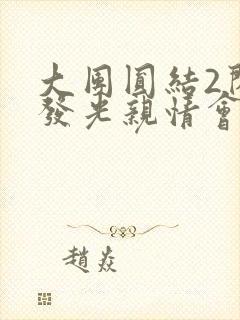 大團圓結2
發光親情會
趙焱